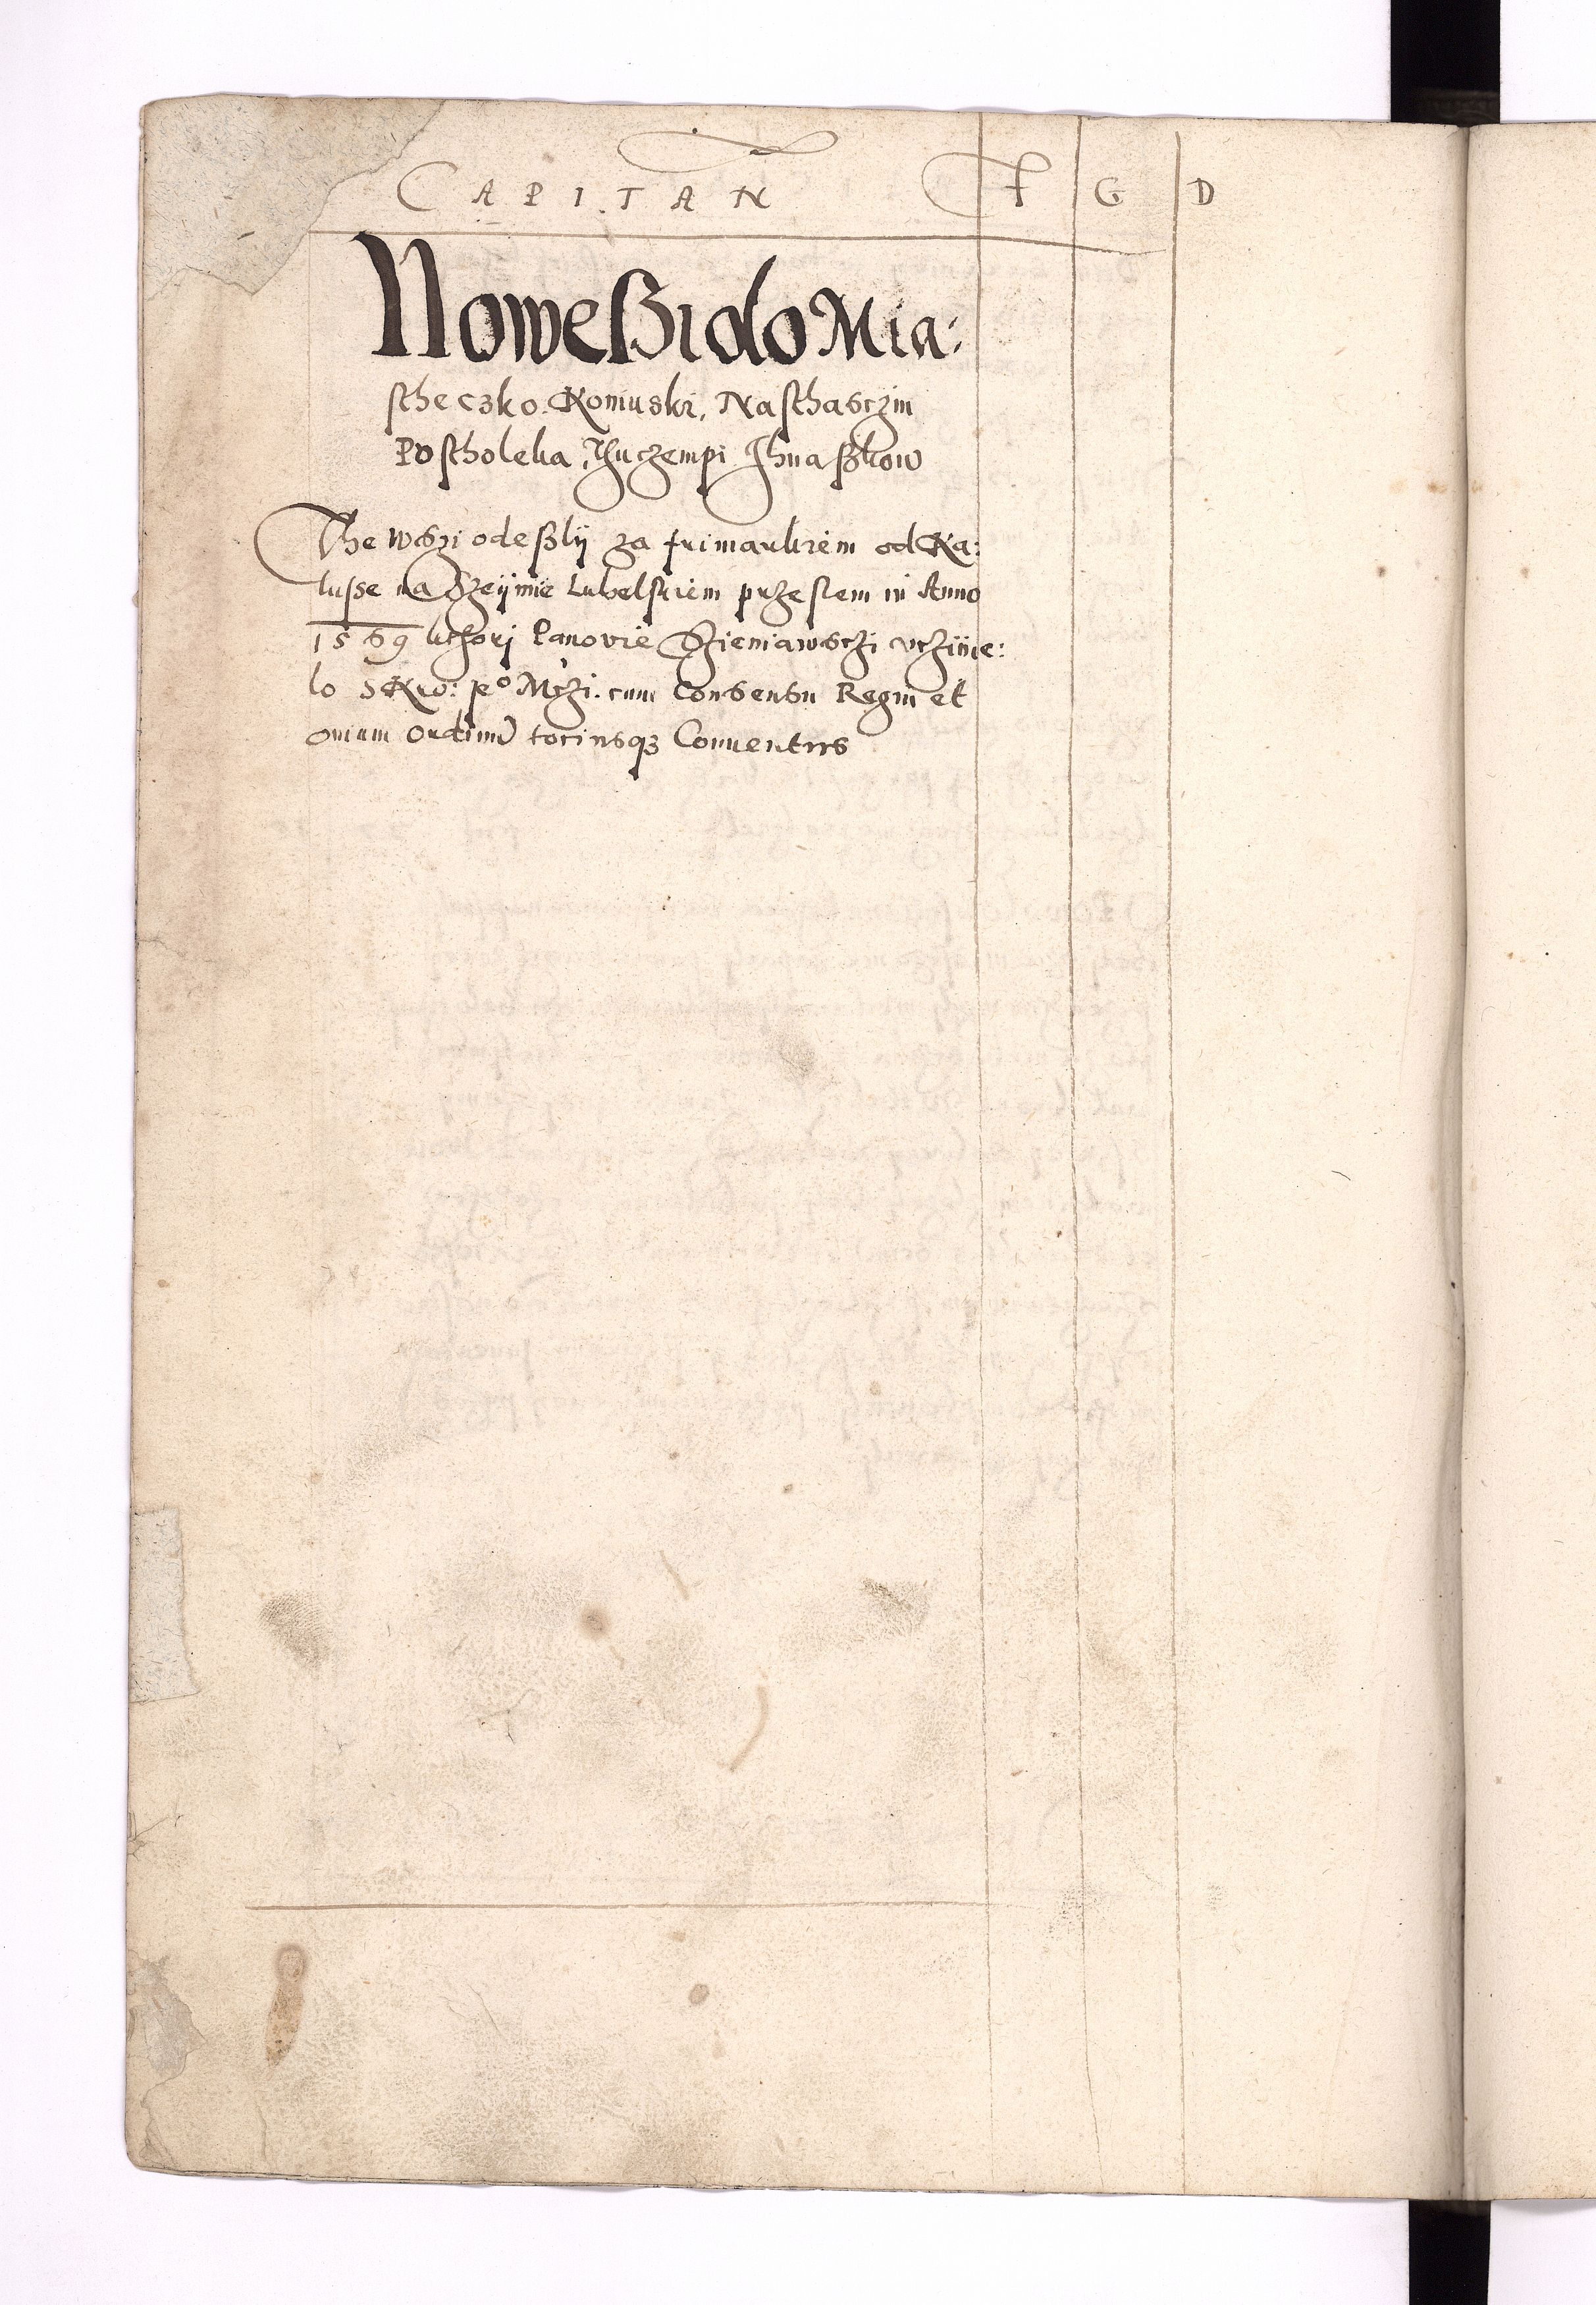 CAPITAN F G D
Noweßiolo Mia:
stheczko. Koniuski, Nasthasczin
Postholeka, Thuczempi Ihnaßkow
The wszi odeßlÿ za frimarkiem od Ka:
lusse na Szeÿmie Lubelskiem przeslem in Anno
1569 kthori Panovie Sieniawsczi vcziinie:
lo s Kro: Jeº Mczi. cum Consensu Regni et
omium Ordinu totiusqз Conuentus